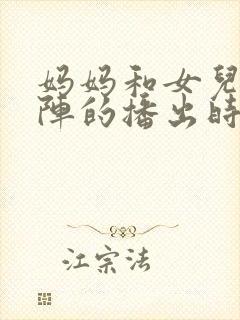 妈妈和女兒
陣的播出時
江宗法